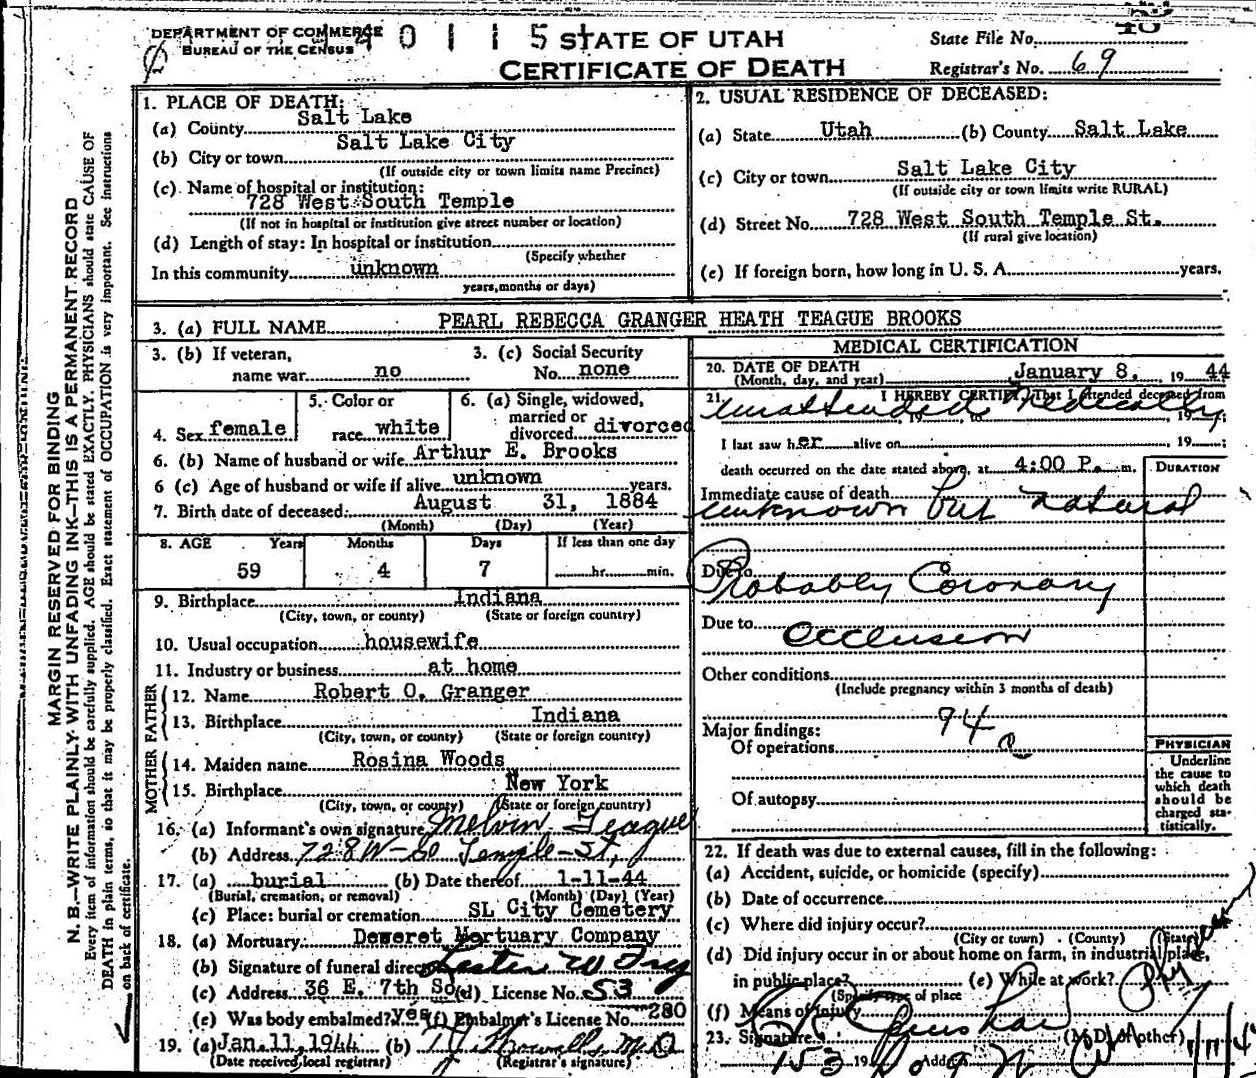 DEPARTMENT OF COMMERCE
BUREAU OF THE CENSUS
4 0 1 1 5
STATE OF UTAH
CERTIFICATE OF DEATH
State File No.
Registrar's No. 69
MARGIN RESERVED FOR BINDING
N. B.—WRITE PLAINLY WITH UNFADING INK—THIS IS A PERMANENT RECORD
Every item of information should be carefully supplied. AGE should be stated EXACTLY. PHYSICIANS should state CAUSE OF
DEATH in plain terms, so that it may be properly classified. Exact statement of OCCUPATION is very important. See instructions
on back of certificate.
1. PLACE OF DEATH:
(a) County Salt Lake
(b) City or town Salt Lake City
(If outside city or town limits name Precinct)
(c) Name of hospital or institution:
728 West South Temple
(If not in hospital or institution give street number or location)
(d) Length of stay: In hospital or institution
(Specify whether
In this community unknown
years, months or days)
2. USUAL RESIDENCE OF DECEASED:
(a) State Utah (b) County Salt Lake
(c) City or town Salt Lake City
(If outside city or town limits write RURAL)
(d) Street No. 728 West South Temple St.
(If rural give location)
(e) If foreign born, how long in U. S. A. years.
3. (a) FULL NAME PEARL REBECCA GRANGER HEATH TEAGUE BROOKS
3. (b) If veteran,
name war no
3. (c) Social Security
No. none
4. Sex female
5. Color or
race white
6. (a) Single, widowed,
married or
divorced divorced
6. (b) Name of husband or wife Arthur E. Brooks
6 (c) Age of husband or wife if alive unknown years.
7. Birth date of deceased: August 31, 1884
(Month) (Day) (Year)
8. AGE Years Months Days If less than one day
59 4 7 hr. min.
9. Birthplace Indiana
(City, town, or county) (State or foreign country)
10. Usual occupation housewife
11. Industry or business at home
FATHER
12. Name Robert O. Granger
13. Birthplace Indiana
(City, town, or county) (State or foreign country)
MOTHER
14. Maiden name Rosina Woods
15. Birthplace New York
(City, town, or county) (State or foreign country)
16. (a) Informant's own signature Melvin Teague
(b) Address 728 W-So Temple-St,
17. (a) burial (b) Date thereof 1-11-44
(Burial, cremation, or removal) (Month) (Day) (Year)
(c) Place: burial or cremation SL City Cemetery
18. (a) Mortuary Deweret Mortuary Company
(b) Signature of funeral director
(c) Address 36 E. 7th So. (d) License No. 53
(e) Was body embalmed? yes (f) Embalmer's License No. 280
19. (a) Jan. 11, 1944 (b)
(Date received local registrar) (Registrar's signature)
MEDICAL CERTIFICATION
20. DATE OF DEATH
(Month, day, and year) January 8, 19 44
21. I HEREBY CERTIFY, That I attended deceased from
unattended Medically
, 19 , to , 19 ;
I last saw her alive on , 19 ;
death occurred on the date stated above, at 4:00 P. m.
DURATION
Immediate cause of death
unknown but natural
Due to Probably Coronary
Due to occlusion
Other conditions
(Include pregnancy within 3 months of death)
94 a
Major findings:
Of operations
Of autopsy
PHYSICIAN
Underline
the cause to
which death
should be
charged sta-
tistically.
22. If death was due to external causes, fill in the following:
(a) Accident, suicide, or homicide (specify)
(b) Date of occurrence
(c) Where did injury occur?
(City or town) (County) (State)
(d) Did injury occur in or about home on farm, in industrial place,
in public place? (e) While at work?
(Specify type of place
(f) Means of injury
23. Signature (M. D. or other)
153 19